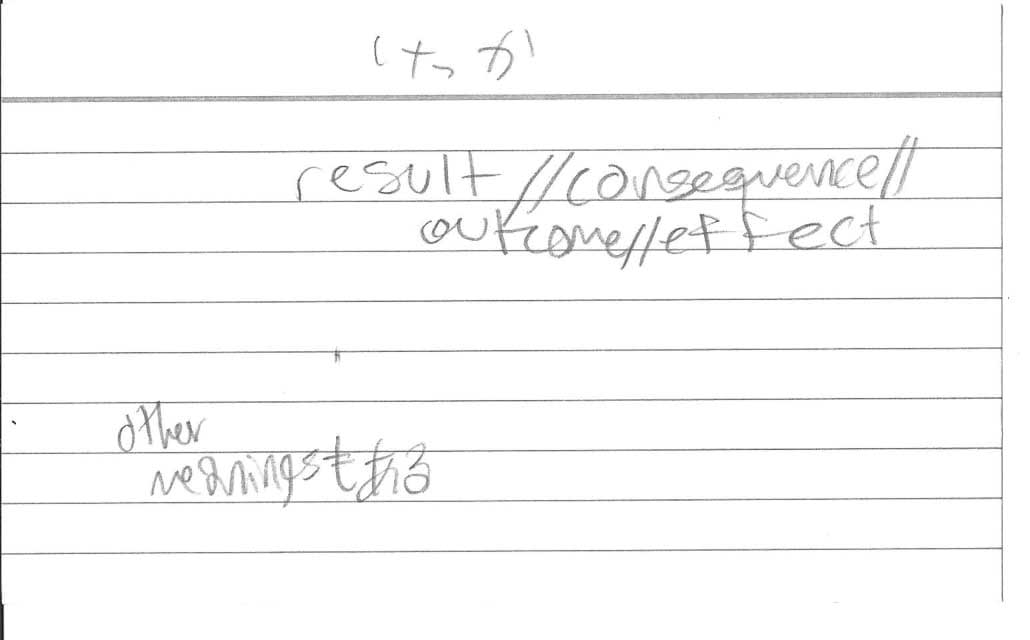 けっか
result//consequence//
outcome//effect
other
meaningsもある